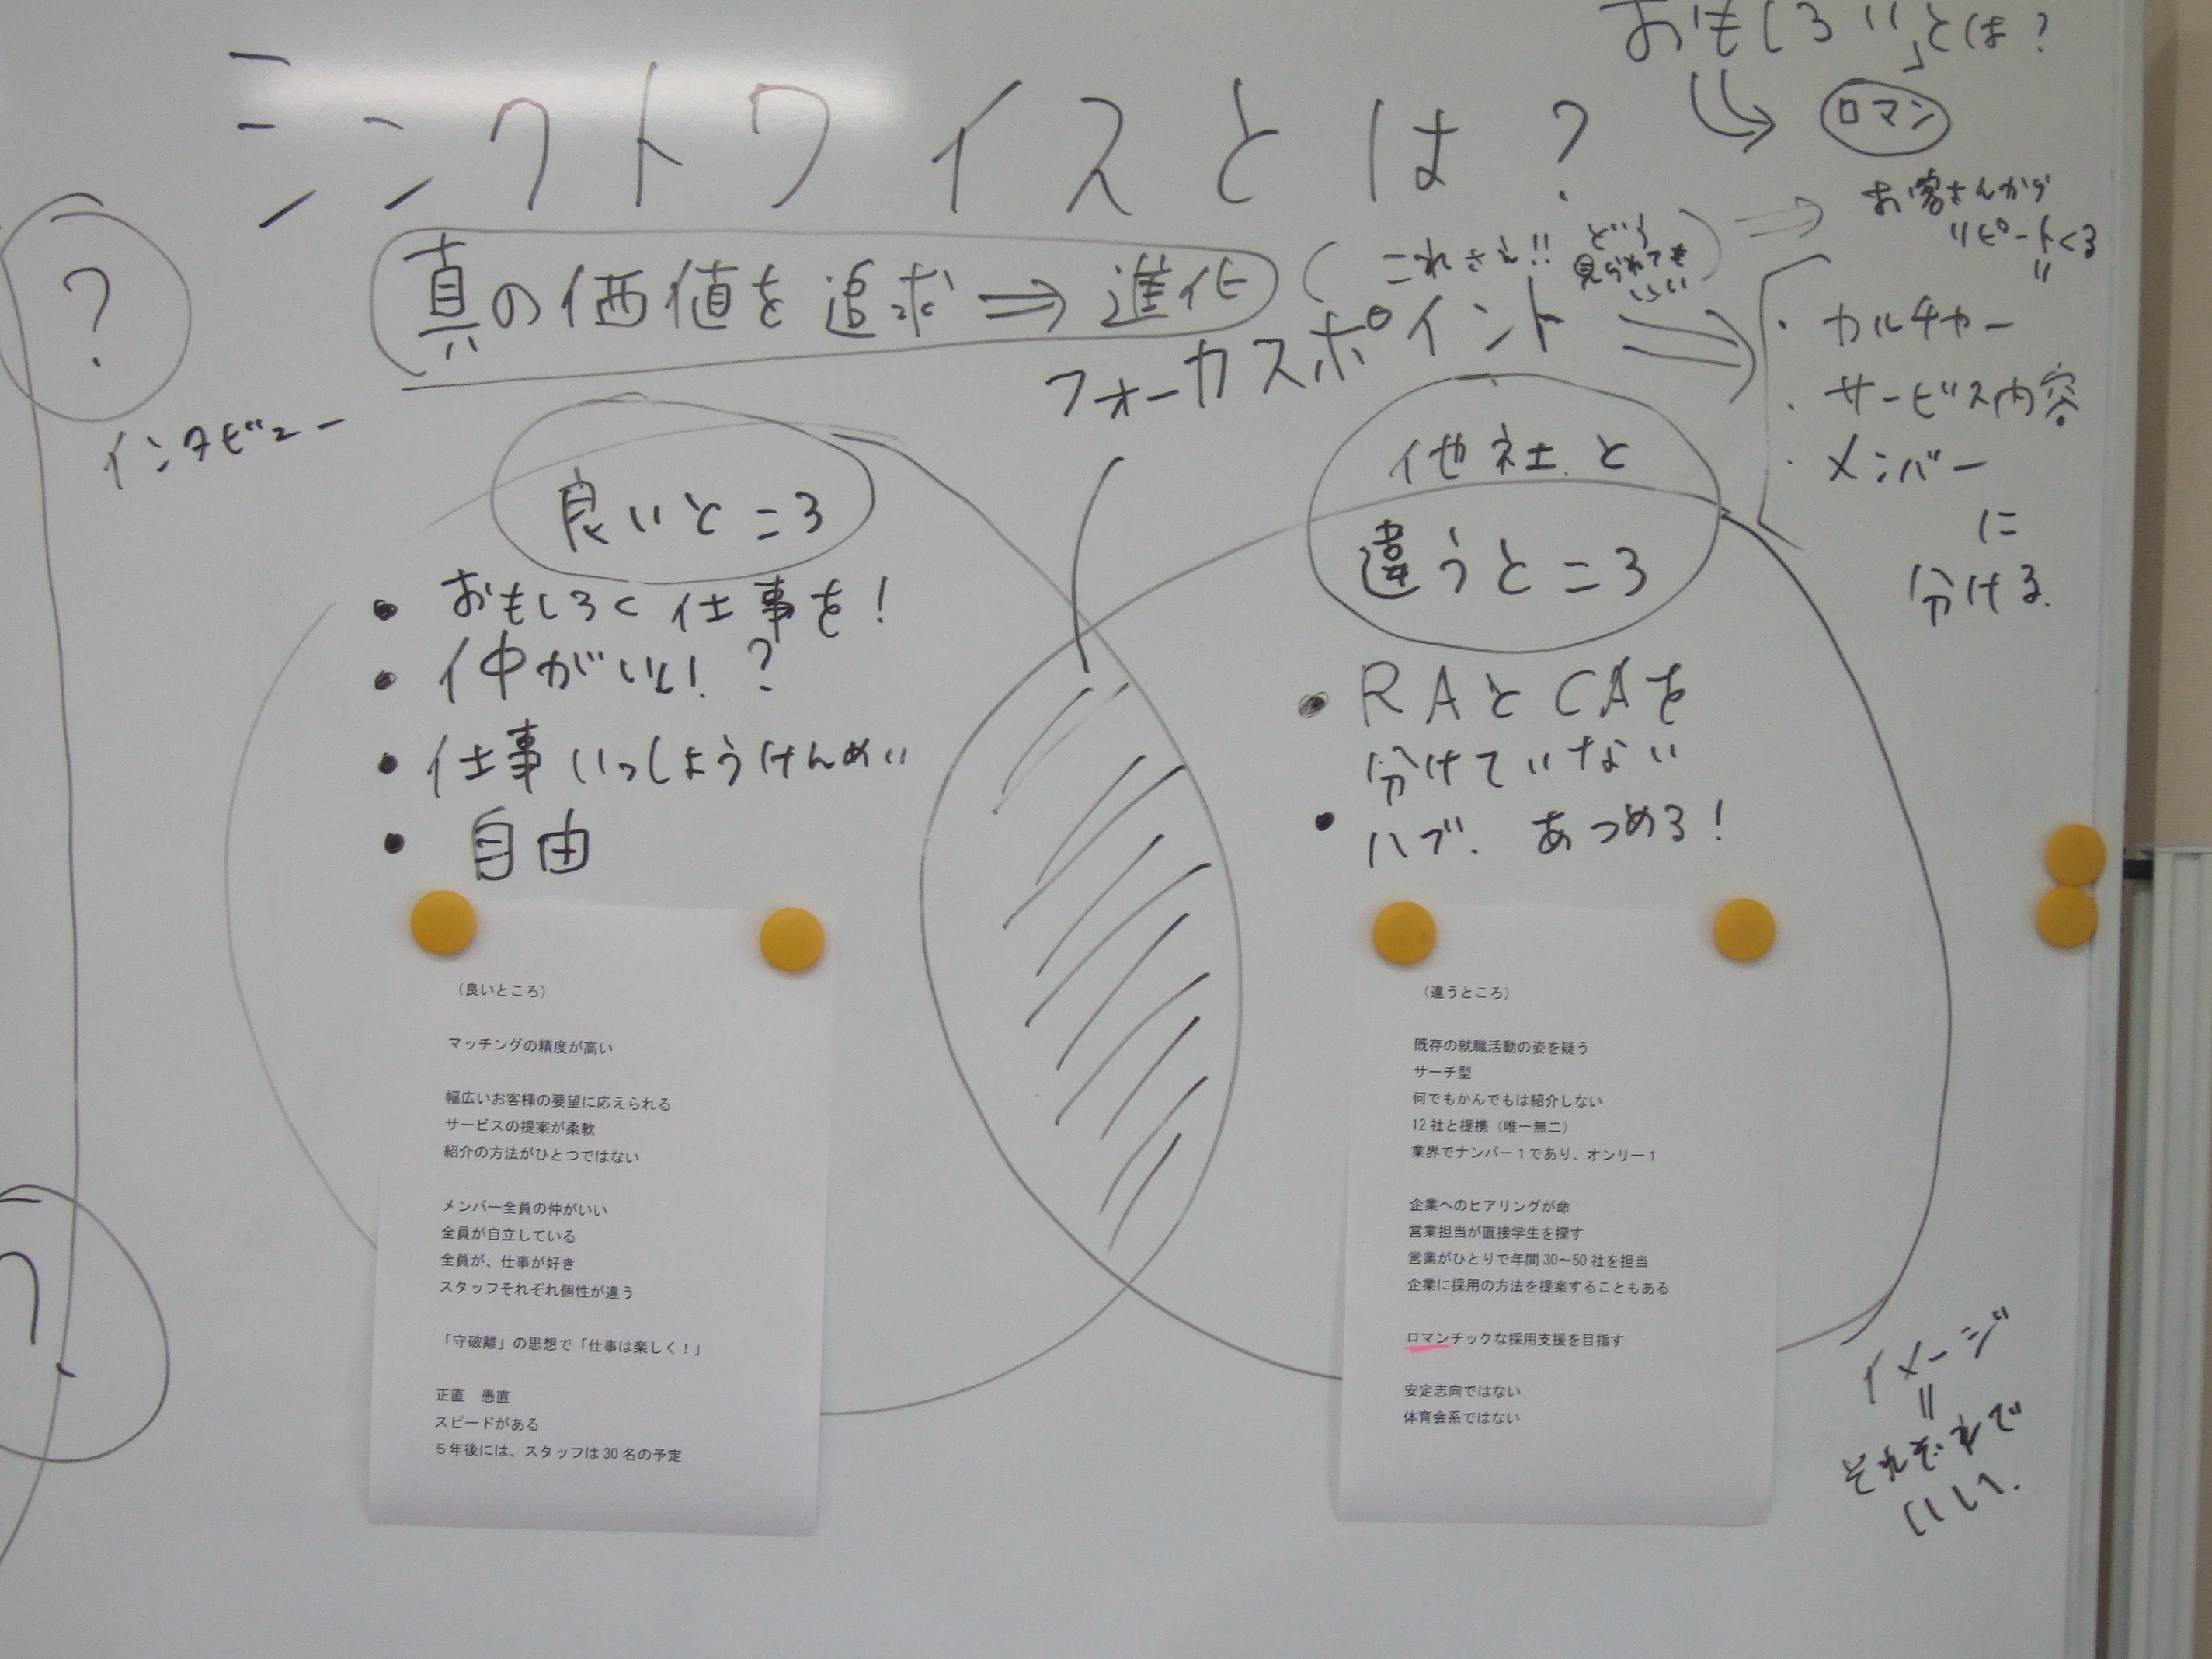 おもしろいとは？
ロマン
シンクトワイスとは？
真の価値を追求⇒進化
(これさえ!! どう
見られても
いい)
お客さんから
リピートくる
〃
フォーカスポイント
・カルチャー
・サービス内容
・メンバー
に
分ける.
?
インタビュー
良いところ
• おもしろく仕事を!
• 仲がいい! ?
• 仕事いっしょうけんめい
• 自由
他社と
違うところ
• RAとCAを
分けていない
• ハブ. あつめる!
（良いところ）
マッチングの精度が高い
幅広いお客様の要望に応えられる
サービスの提案が柔軟
紹介の方法がひとつではない
メンバー全員の仲がいい
全員が自立している
全員が、仕事が好き
スタッフそれぞれ個性が違う
「守破離」の思想で「仕事は楽しく！」
正直　愚直
スピードがある
５年後には、スタッフは30名の予定
（違うところ）
既存の就職活動の姿を疑う
サーチ型
何でもかんでもは紹介しない
12社と提携（唯一無二）
業界でナンバー１であり、オンリー１
企業へのヒアリングが命
営業担当が直接学生を探す
営業がひとりで年間30～50社を担当
企業に採用の方法を提案することもある
ロマンチックな採用支援を目指す
安定志向ではない
体育会系ではない
イメージ
〃
それぞれで
いい.
?